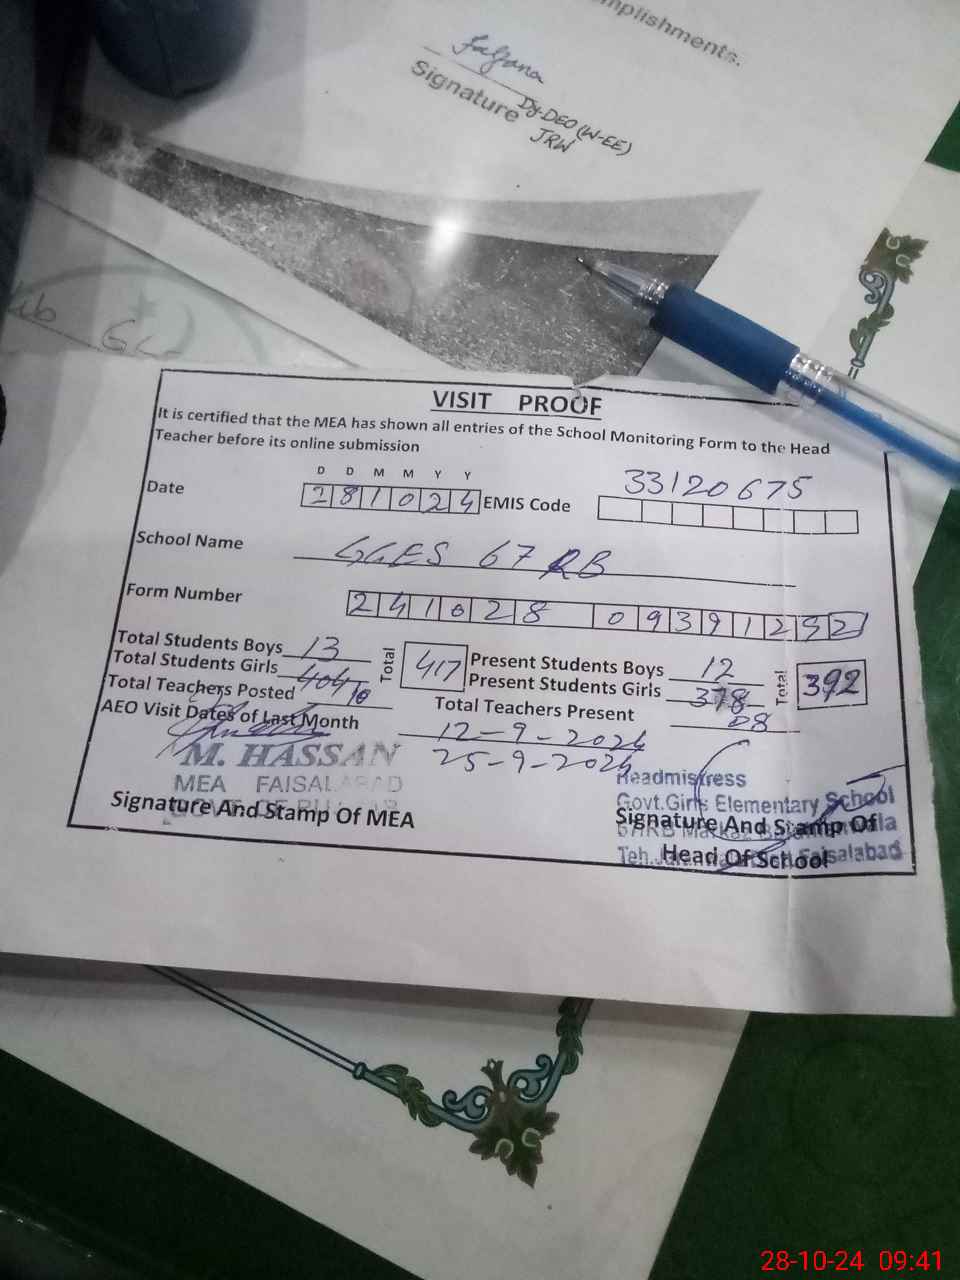 mplishments.
Falzana
Signature
Dy-DEO (W-EE)
JRW
VISIT PROOF
It is certified that the MEA has shown all entries of the School Monitoring Form to the Head
Teacher before its online submission
D D M M Y Y
Date 281024 EMIS Code 33120675
School Name GGES 67 RB
Form Number 241028 09391252
Total Students Boys 13 Total 417 Present Students Boys 12 Total 392
Total Students Girls 404 Present Students Girls 378
Total Teachers Posted 10 Total Teachers Present 08
AEO Visit Dates of Last Month 12-9-2024
25-9-2024
M. HASSAN
MEA FAISALABAD
Signature And Stamp Of MEA
Headmistress
Govt.Girls Elementary School
Signature And Stamp Of
Head Of School
Faisalabad
28-10-24 09:41